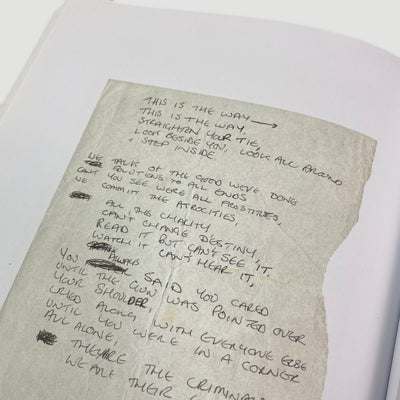 THIS IS THE WAY →
THIS IS THE WAY,
STRAIGHTEN YOUR TIE,
LOOK BESIDE YOU, LOOK ALL AROUND
+ STEP INSIDE.
WE TALK OF THE GOOD WE'VE DONE
SOLUTIONS TO ALL ENDS
CAN'T YOU SEE WERE ALL PROSTITUTES,
WE COMMIT THE ATROCITIES,
ALL THIS CHARITY,
CAN'T CHANGE DESTINY,
READ IT BUT CAN'T SEE IT,
WATCH IT CAN'T HEAR IT,
ALWAYS
YOU SAID YOU CARED
UNTIL THE GUN WAS POINTED OVER
YOUR SHOULDER,
ALONG WITH EVERYONE ELSE
UNTIL YOU WERE IN A CORNER
ALL ALONE,
THEY'RE THE CRIMINALS
WE ARE THEIR